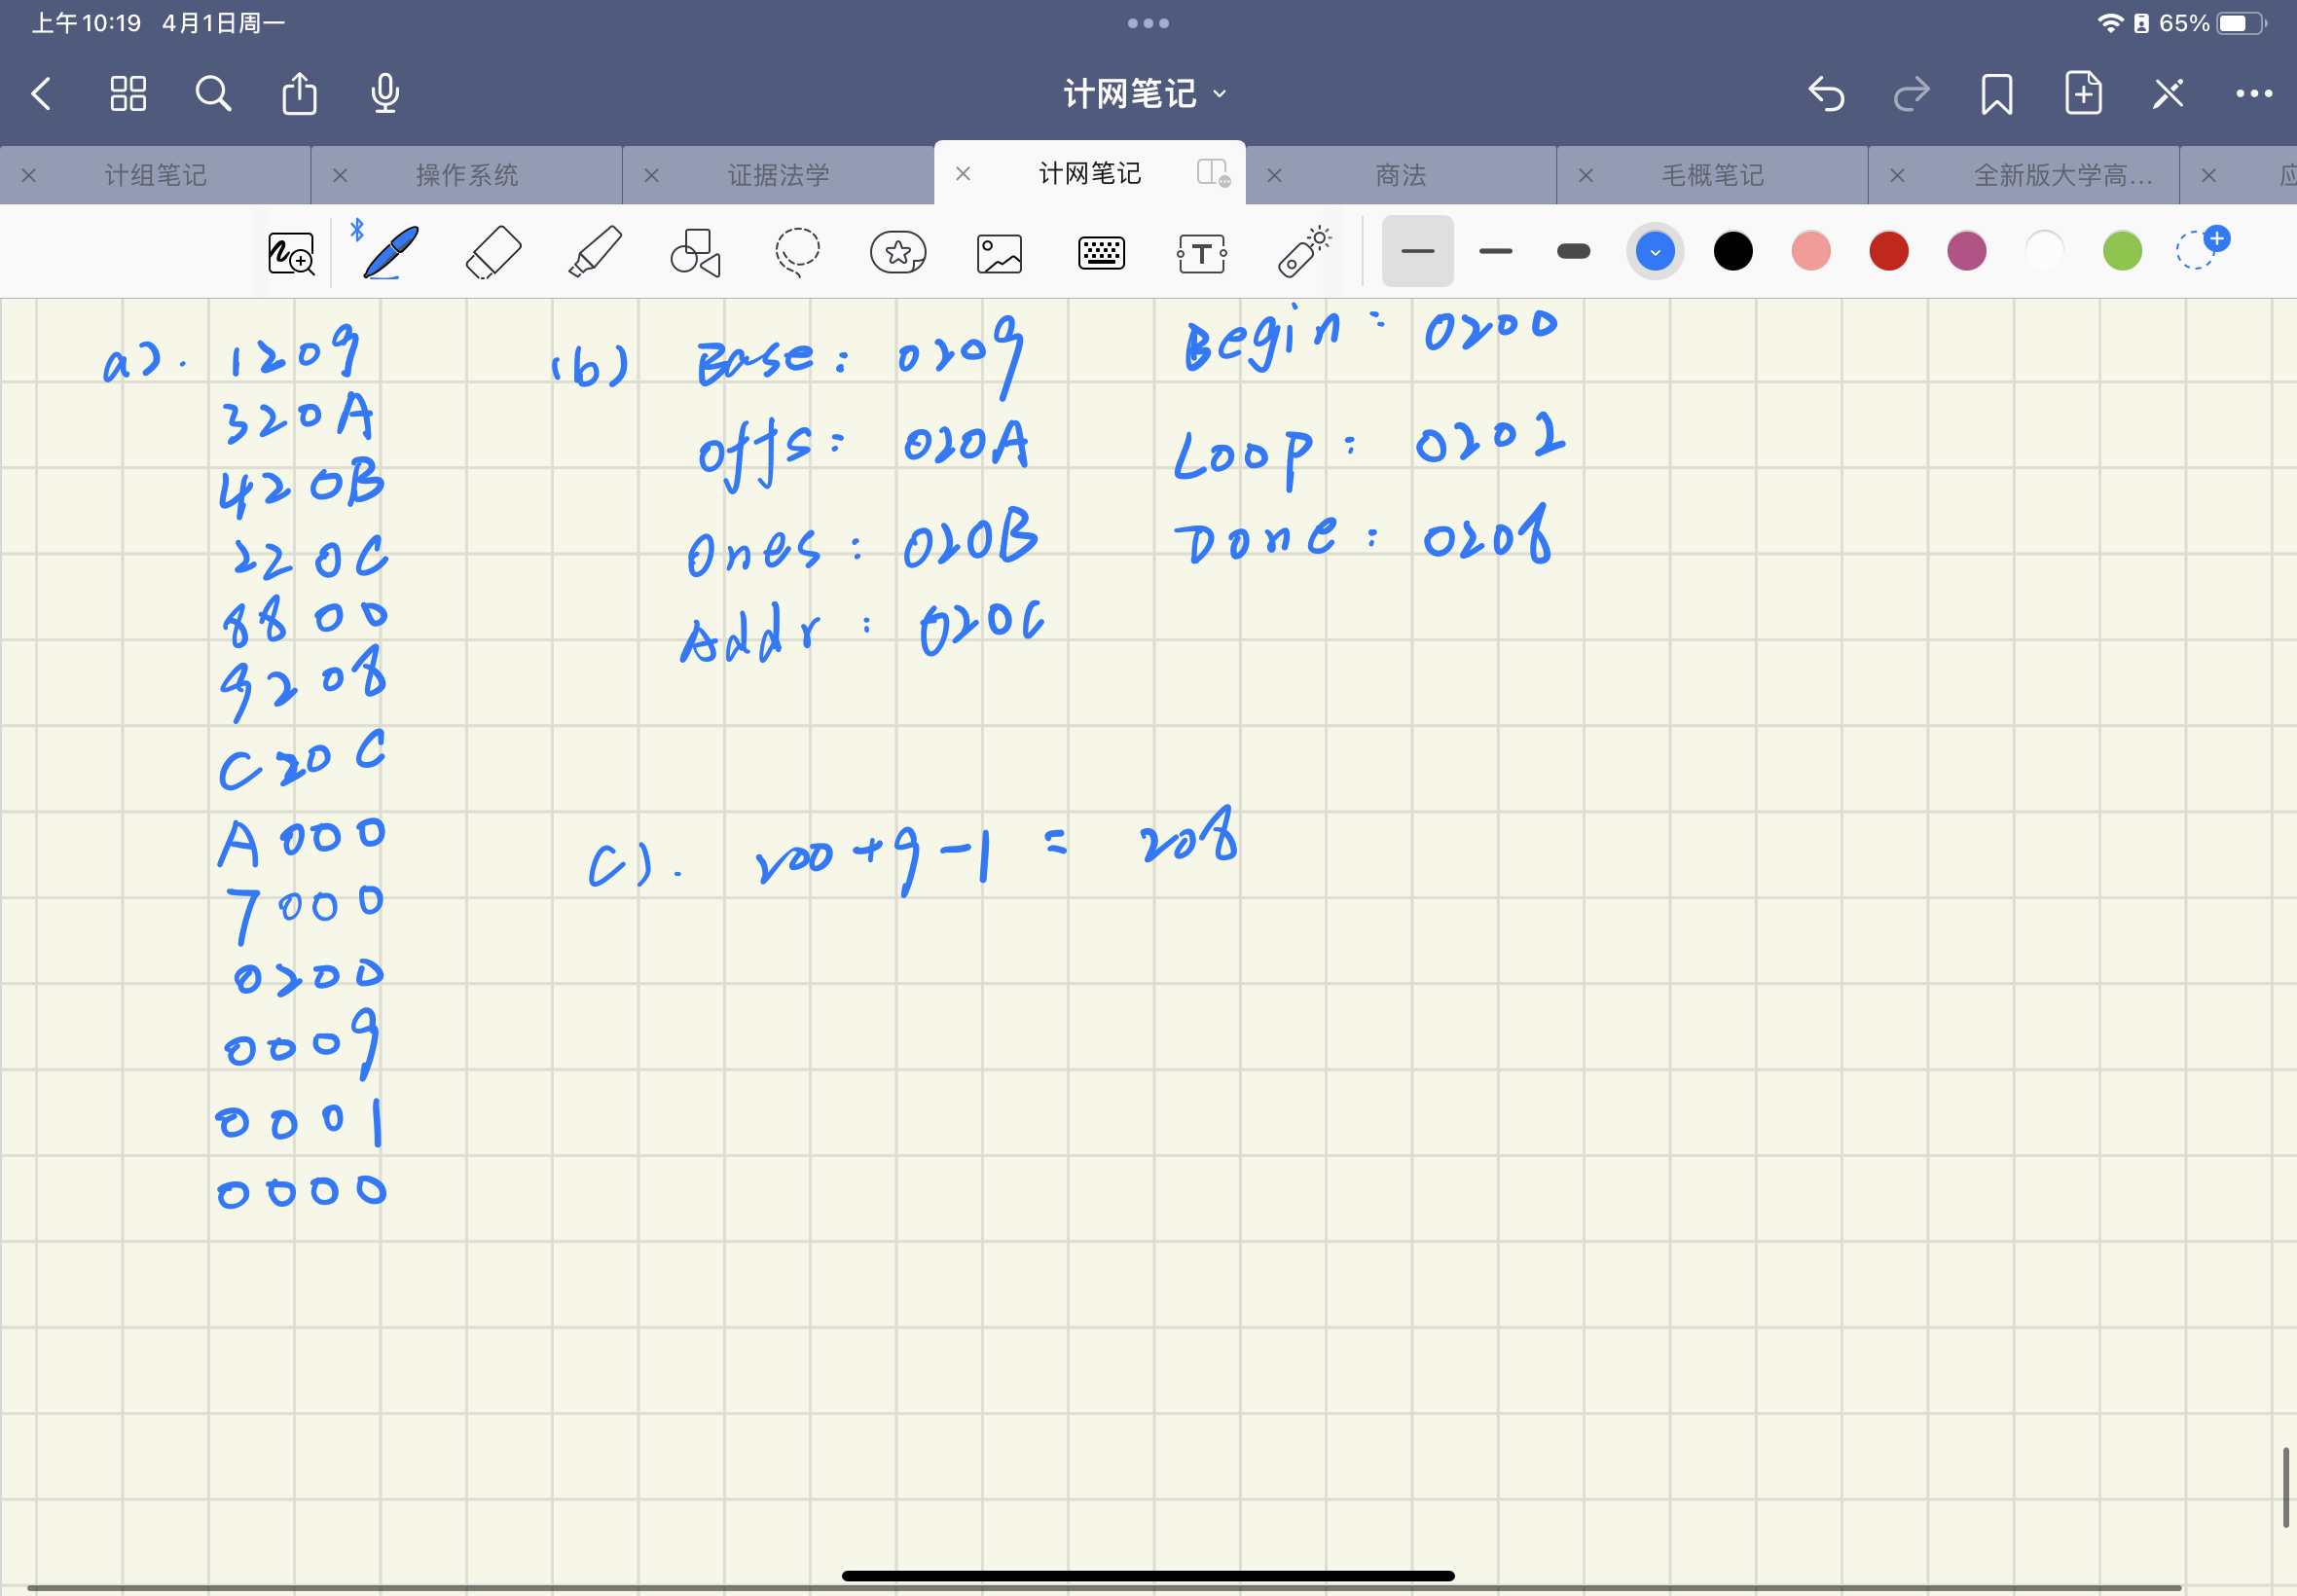 上午10:19 4月1日周一
65%
计网笔记
计组笔记 操作系统 证据法学 计网笔记 商法 毛概笔记 全新版大学高...
a). 1209
320A
420B
220C
8800
9208
C20C
A000
7000
0200
0009
0001
0000
(b) Base: 0209
offs: 020A
Ones: 020B
Addr: 020C
Begin: 0200
Loop: 0202
Done: 0208
C). 200+9-1= 208